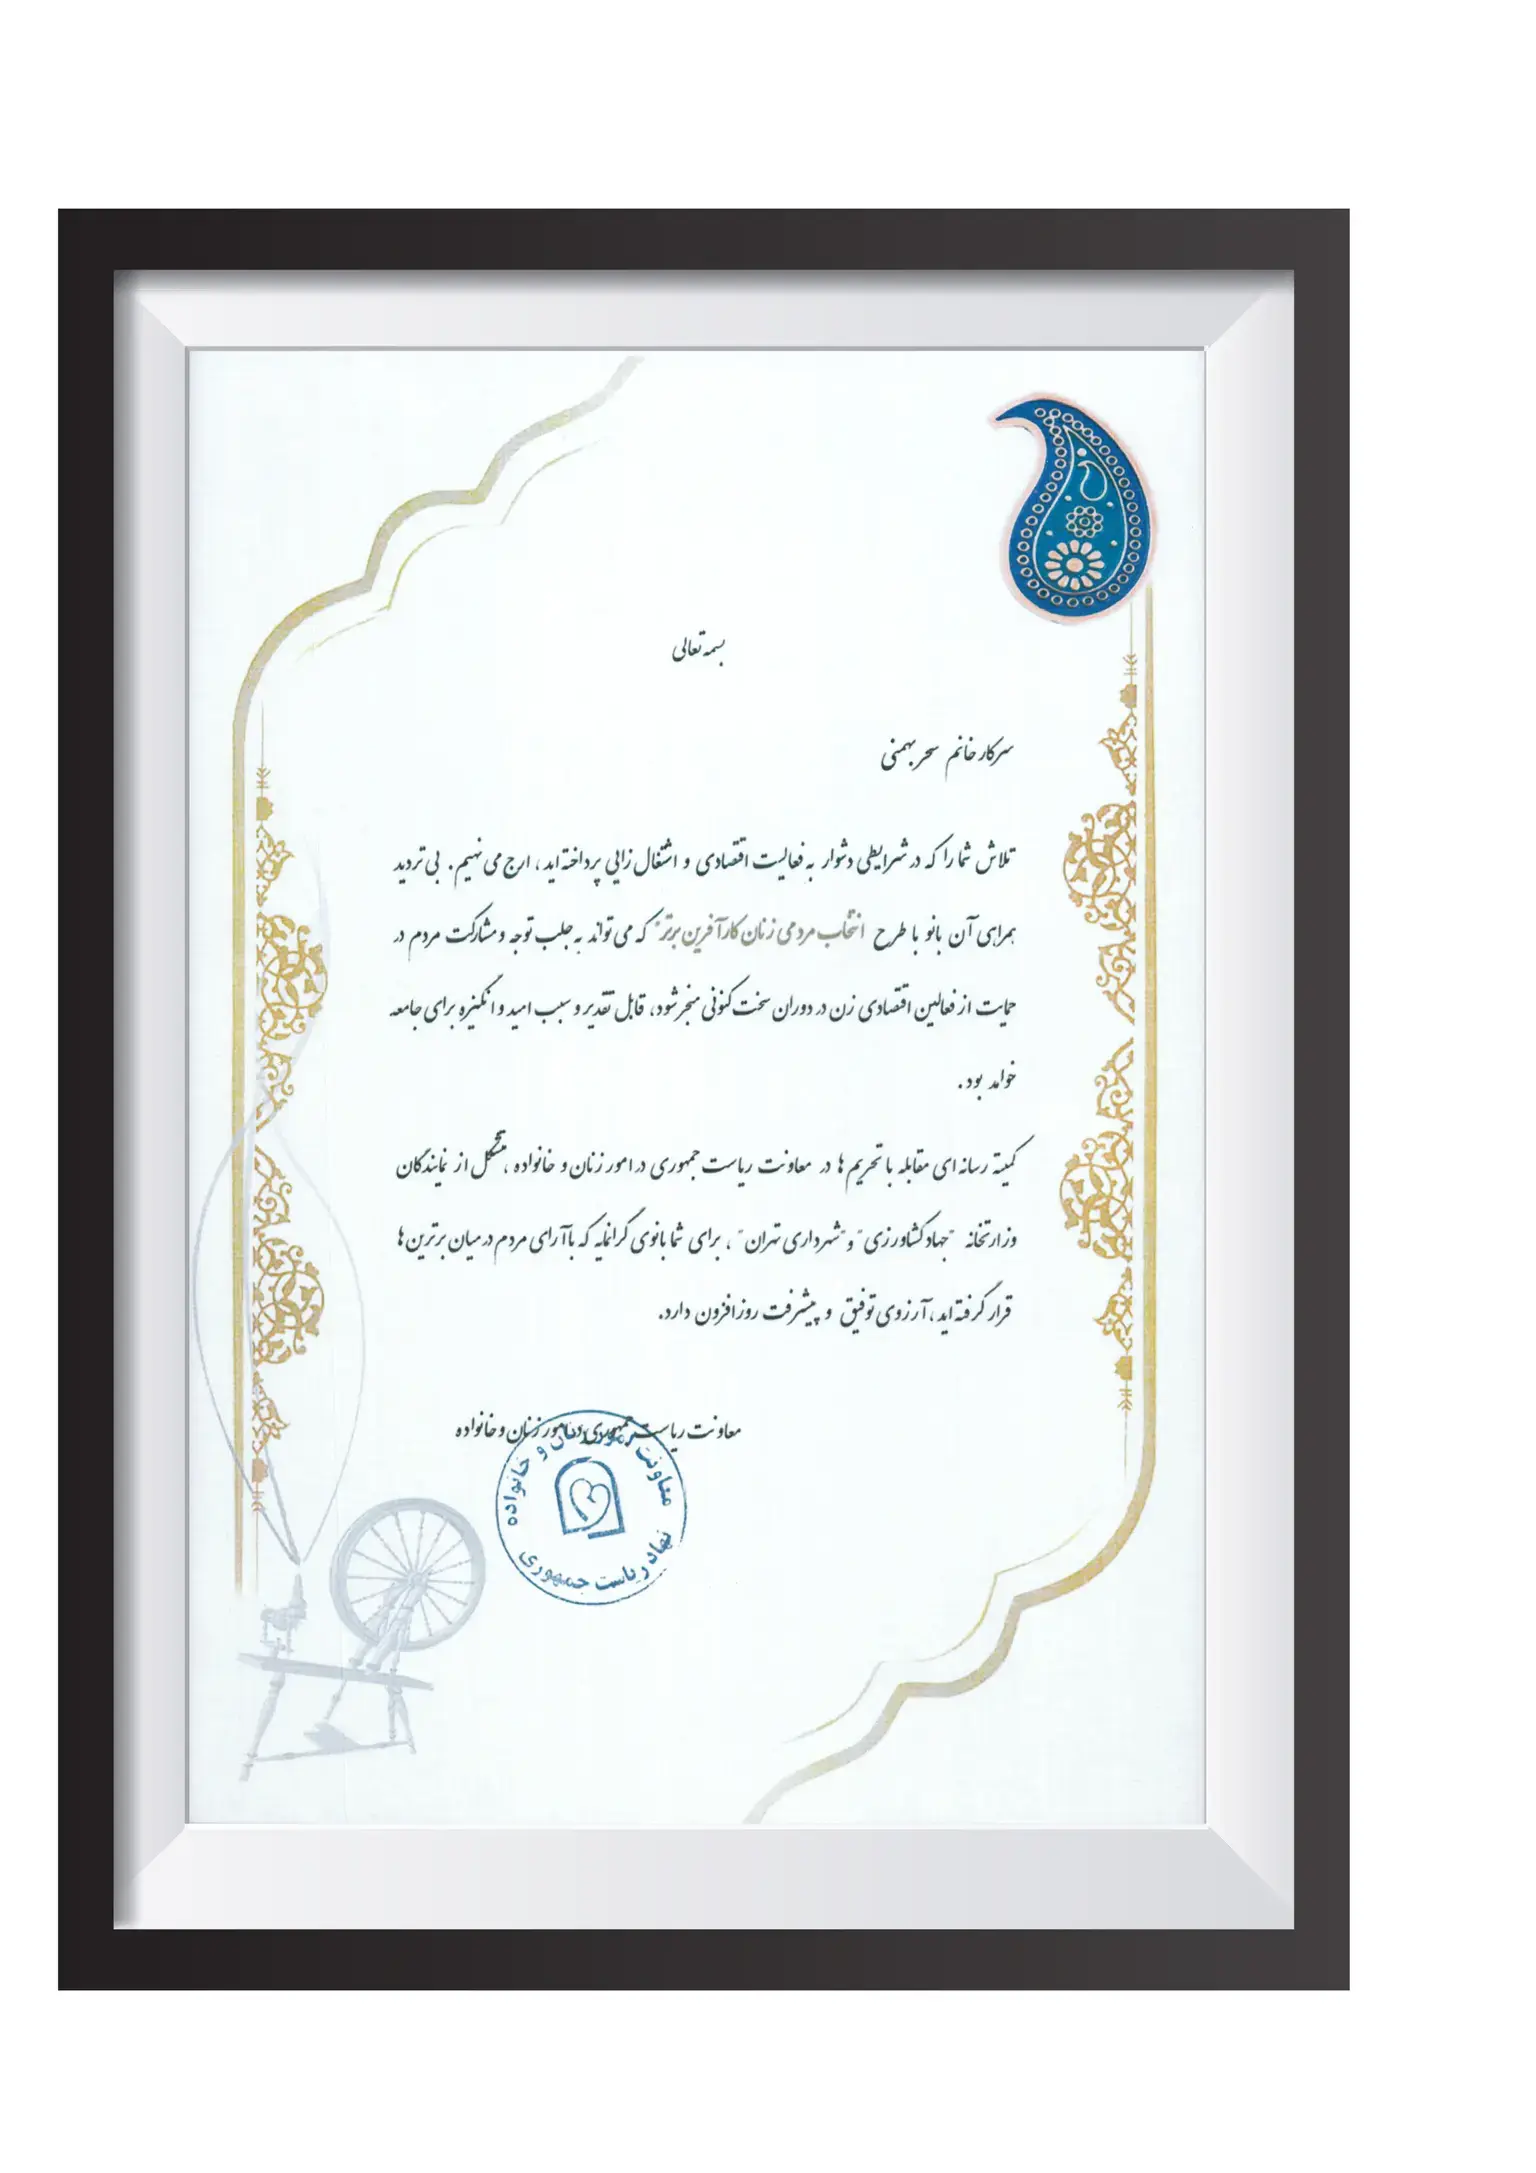 بسمه تعالی
سرکار خانم سحر بهمنی
تلاش شما را که در شرایطی دشوار به فعالیت اقتصادی و اشتغال زایی پرداخته اید، ارج می نهیم. بی تردید
همراهی آن بانو با طرح انتخاب مردمی زنان کارآفرین برتر" که می تواند به جلب توجه و مشارکت مردم در
حمایت از فعالین اقتصادی زن در دوران سخت کنونی منجر شود، قابل تقدیر و سبب امید و انگیزه برای جامعه
خواهد بود.
کمیته رسانه ای مقابله با تحریم ها در معاونت ریاست جمهوری در امور زنان و خانواده، متشکل از نمایندگان
وزارتخانه "جهاد کشاورزی" و "شهرداری تهران"، برای شما بانوی گرانمایه که با آرای مردم در میان برترین ها
قرار گرفته اید، آرزوی توفیق و پیشرفت روز افزون دارد.
معاونت ریاست جمهوری در امور زنان و خانواده
معاونت امور زنان و خانواده
نهاد ریاست جمهوری